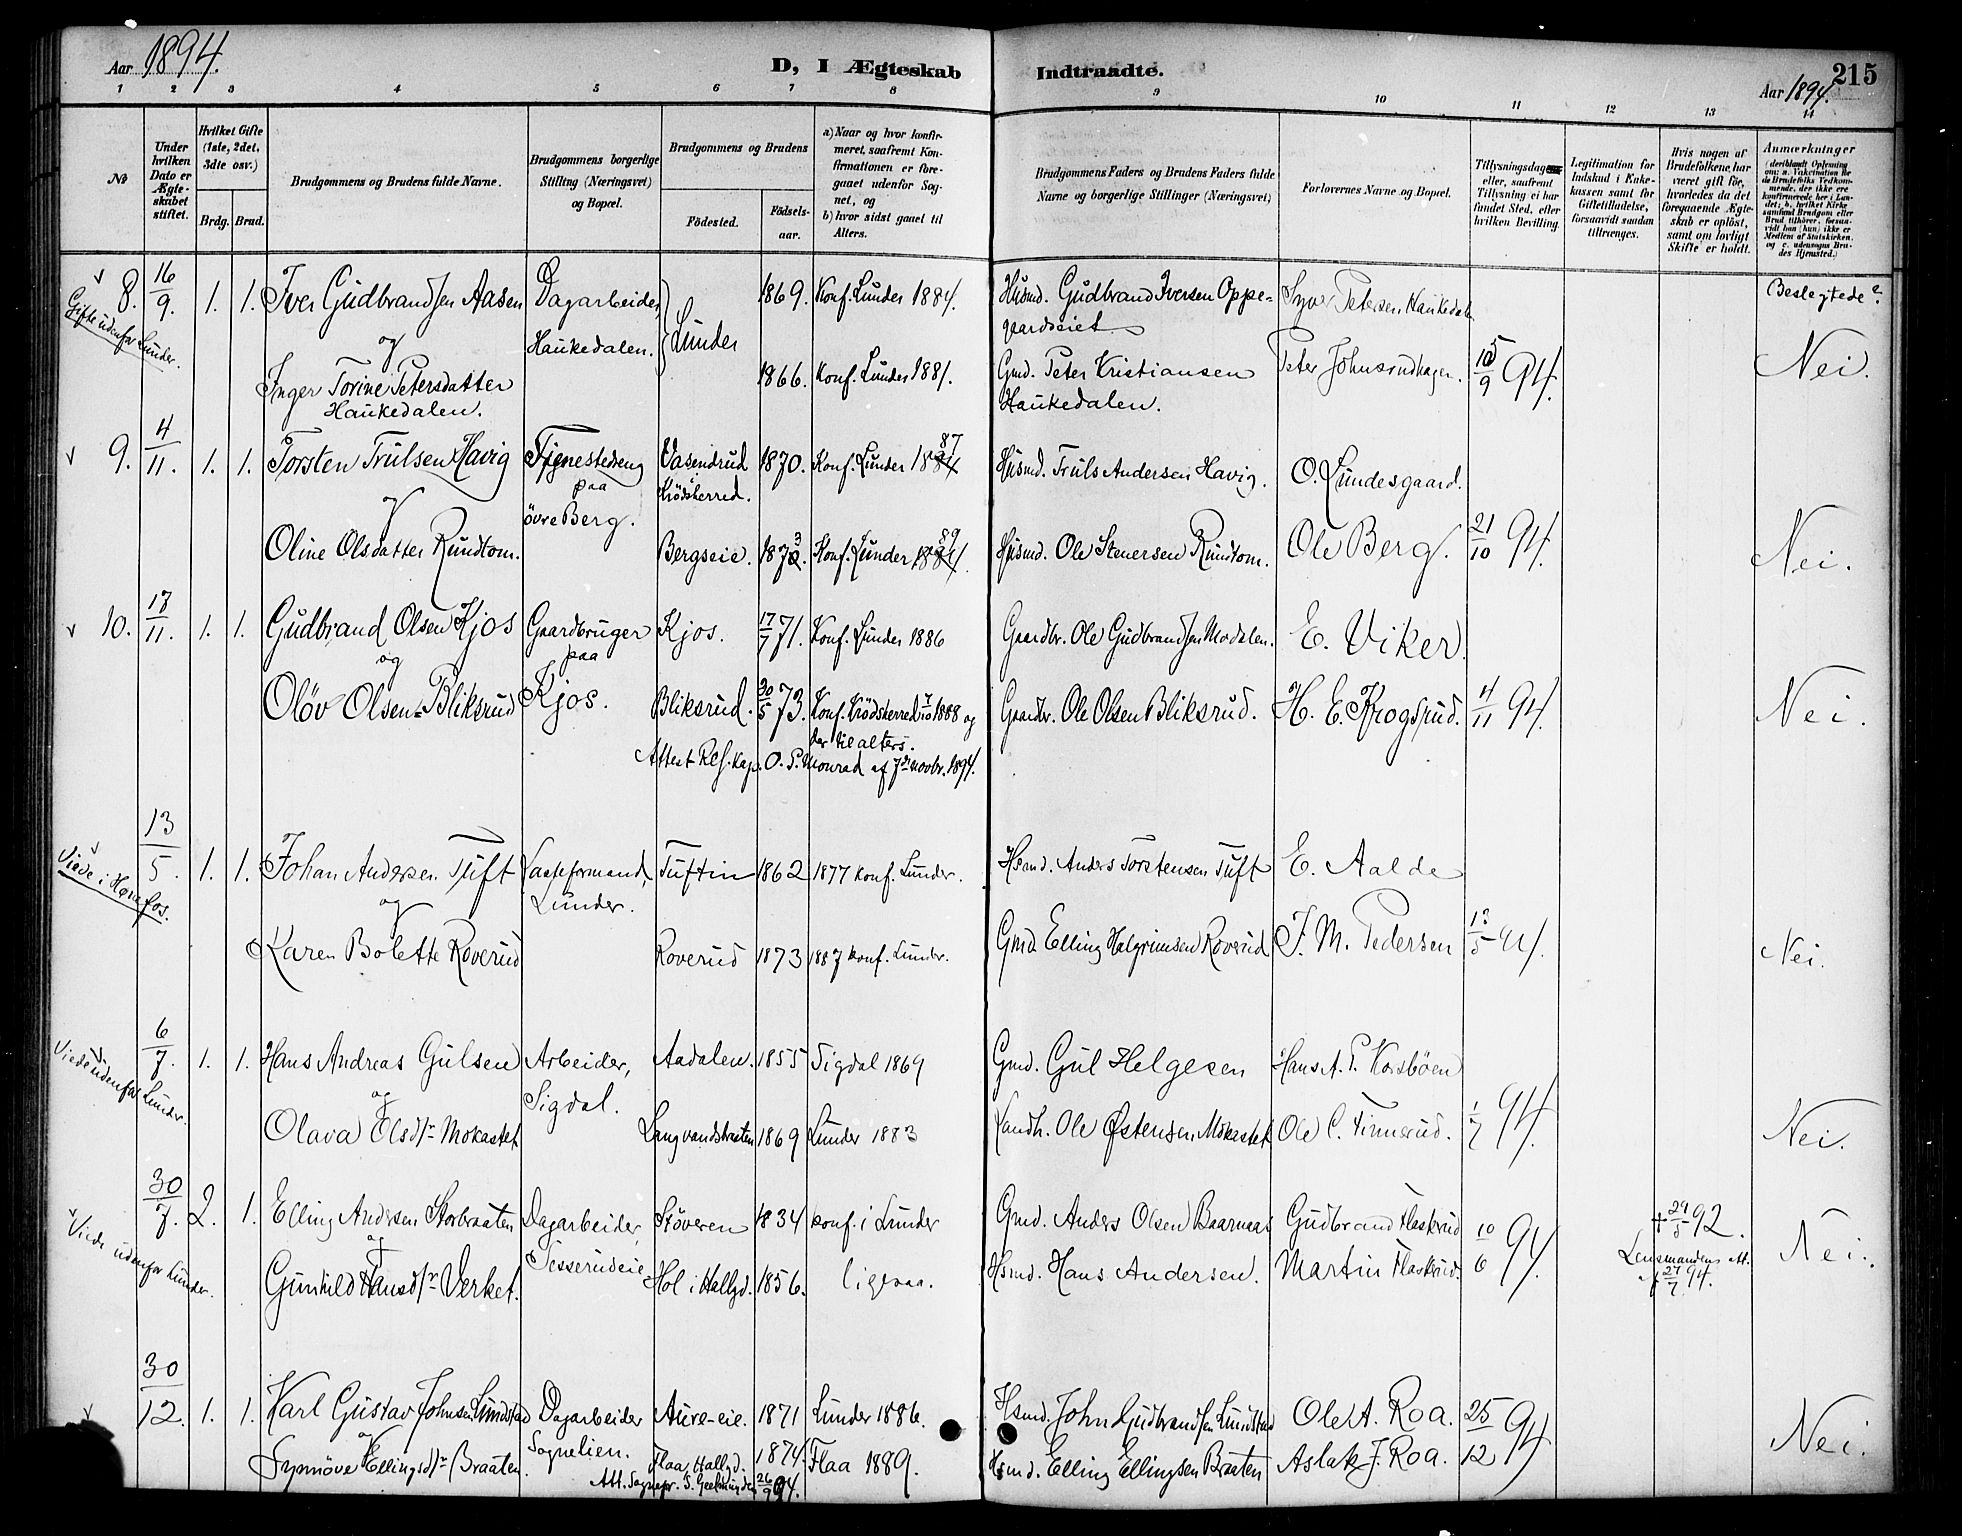 Aar 1894.
D, I Ægteskab
Indtraadte.
Aar 1894.
215
1 2 3 4 5 6 7 8 9 10 11 12 13 14
No
Under hvilken Dato er Ægteskabet stiftet.
Hvilket Gifte (1ste, 2det, 3die osv.)
Brdg. Brud.
Brudgommens og Brudens fulde Navne.
Brudgommens borgerlige Stilling (Næringsvei) og Bopæl.
Brudgommens og Brudens
Födested.
Födselsaar.
a) Naar og hvor konfirmeret, saafremt Konfirmationen er foregaaet udenfor Sognet, og
b) hvor sidst gaaet til Alters.
Brudgommens Faders og Brudens Faders fulde Navne og borgerlige Stillinger (Næringsvei)
Forlovernes Navne og Bopæl.
Tillysningsdagene eller, saafremt Tillysning ei har fundet Sted, efter hvilken Bevilling.
Legitimation for Indskud i Enkekassen samt for Giftetilladelse, forsaavidt saadan tiltrænges.
Hvis nogen af Brudefolkene har været gift för, hvorledes da det foregaaende Ægteskab er oplöst, samt om lovligt Skifte er holdt.
Anmærkninger
(deriblandt Oplysning om: a. Vaccination for de Brudefolks Vedkommende, der ikke ere konfirmerede her i Landet; b. hvilket Kirkesamfund Brudgom eller Brud tilhörer, forsaavidt han (hun) ikke er Medlem af Statskirken, og c. udensogns Brudes Hjemsted.)
v 8. 16/9 1. 1. Iver Gudbrandsen Aasen Dagarbeider, 1869. Konf. Lunder 1884. Husmd. Gudbrand Iversen Oppegaardseiet Syver Petersen Haukedalen Beslegtede?
Gifte udenfor Lunder.
og Haukedalen. Lunder
Inger Torine Petersdatter Haukedalen. 1866. Konf. Lunder 1881. Gmd. Peter Kristiansen Haukedalen. Peter 10/9 94. Nei.
v 9. 4/11. 1. 1. Torsten Trulsen Havig Tjenestedreng paa övre Berg. Vasendrud Krödsherred. 1870. Konf. Lunder 1884 87 Husmd. Truls Andersen Havig. O. Lundesgaard.
og
Oline Olsdatter Rundtom. Bergseie. 1873. Konf. Lunder 1884. 89 Husmd. Ole Stenersen Rundtom. Ole Berg. 21/10 94. Nei.
v 10. 17/11. 1. 1. Gudbrand Olsen Kjos Gaardbruger paa Kjos. Kjos. 17/7 71. Konf. Lunder 1886 Gaardbr. Ole Gudbrandsen Modalen. E. Viker.
og
Olöv Olsen Bliksrud Bliksrud. 30/5 73. Konf. Krödsherred 7/10 1888 og der til alters. Gaardbr. Ole Olsen Bliksrud. H. E. Krogsrud. 4/11 94. Nei.
Attest Res. kap. O. P. Monrad af 7de novbr. 1894.
v 13/5. 1. 1. Johan Andersen Tuft Lunder. Tuftin 1862 1877 Konf. Lunder. Hsmd. Anders Torstensen Tuft E. Aalde
Viede i Hønefos.
og
Karen Bolette Roverud Roverud 1873 1887 konf. Lunder. Gmd. Elling Halgrimsen Roverud J. M. Pedersen 13/5 94. Nei.
6/7. 1. 1. Hans Andreas Gulsen Arbeider, Sigdal. Aadalen. 1855 Sigdal 1869 Gmd. Gul Helgesen Hans A. P. Korsböen
Viede udenfor Lunder.
og
Olava Olsdtr Mokastet Langvandsbraaten 1869 Lunder 1883 Landh. Ole Østensen Mokastet Ole C. Finnerud. 1/7 94. Nei.
v 30/7. 2. 1. Elling Andersen Storbraaten Dagarbeider, Tesserudeie Stöveren 1834 konf. i Lunder Gmd. Anders Olsen Baarnaas Gudbrand Flaskrud 10/6 94. + 29/5 92. Nei.
Viede udenfor Lunder.
og
Gunhild Hansdtr Verket. Hol i Hallgd. 1856. ligesaa. Hsmd. Hans Andersen. Martin Flaskrud. Lensmandens att. af 27/7 94.
v 30/12. 1. 1. Karl Gustav Johnsen Lundstad Dagarbeider Sognelien. Aure-eie. 1871 Lunder 1886. Hsmd. John Gudbrandsen Lundstad Ole A. Roa. 25/12 94 Nei.
og
Synnöve Ellingsdtr Braaten. Flaa, Hallgd. 1874. Flaa 1889. Hsmd. Elling Ellingsen Braaten Aslak J. Roa.
Att. Sognepr. S. Geelmuyden 26/9 94.